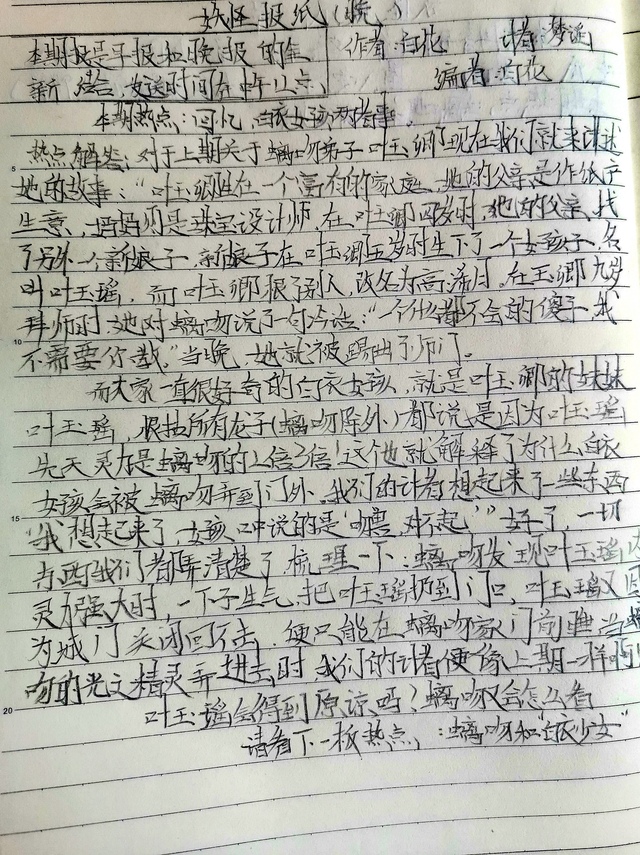 妖怪报纸(晚)
本期报是早报和晚报的全 作者:白花 记者:梦谣
新结合,发送时间在中午12点 编者:白花
本期热点:回忆,白衣女孩两者事.
热点解答:对于上期关于螭吻弟子叶玉卿,现在我们就来讲述
她的故事:“叶玉卿生在一个富有的家庭,她的父亲是作纸产
生意,妈妈则是珠宝设计师,在叶玉卿四岁时,她的父亲,找
了另外一个新娘子,新娘子在叶玉卿五岁时生下了一个女孩子,名
叫叶玉瑶,而叶玉卿狠了别人,改名为高浠月,在玉卿九岁
拜师时,她对螭吻说了一句冷话:“一个什么都不会的傻子,我
不需要你教。”当晚,她就被踢出了师门。
而大家一直很好奇的白衣女孩,就是叶玉卿的妹妹
叶玉瑶,根据所有龙子(螭吻除外)都说是因为叶玉瑶
先天灵力是螭吻的2倍3倍!这个也就解释了为什么白衣
女孩会被螭吻弄到门外,我们的记者想起来了一些东西
“我想起来了,女孩口中说的是‘吻兽,对不起’”好了,一切
东西我们都弄清楚了,梳理一下:螭吻发现叶玉瑶
灵力强大时,一下子生气,把叶玉瑶扔到门口,叶玉瑶又因
为城门关闭回不去,便只能在螭吻家门前睡,当螭
吻的光文精灵弄进去时,我们的记者便像上期一样
叶玉瑶会得到原谅吗?螭吻又会怎么看
请看下一板热点,:螭吻和“白衣少女”